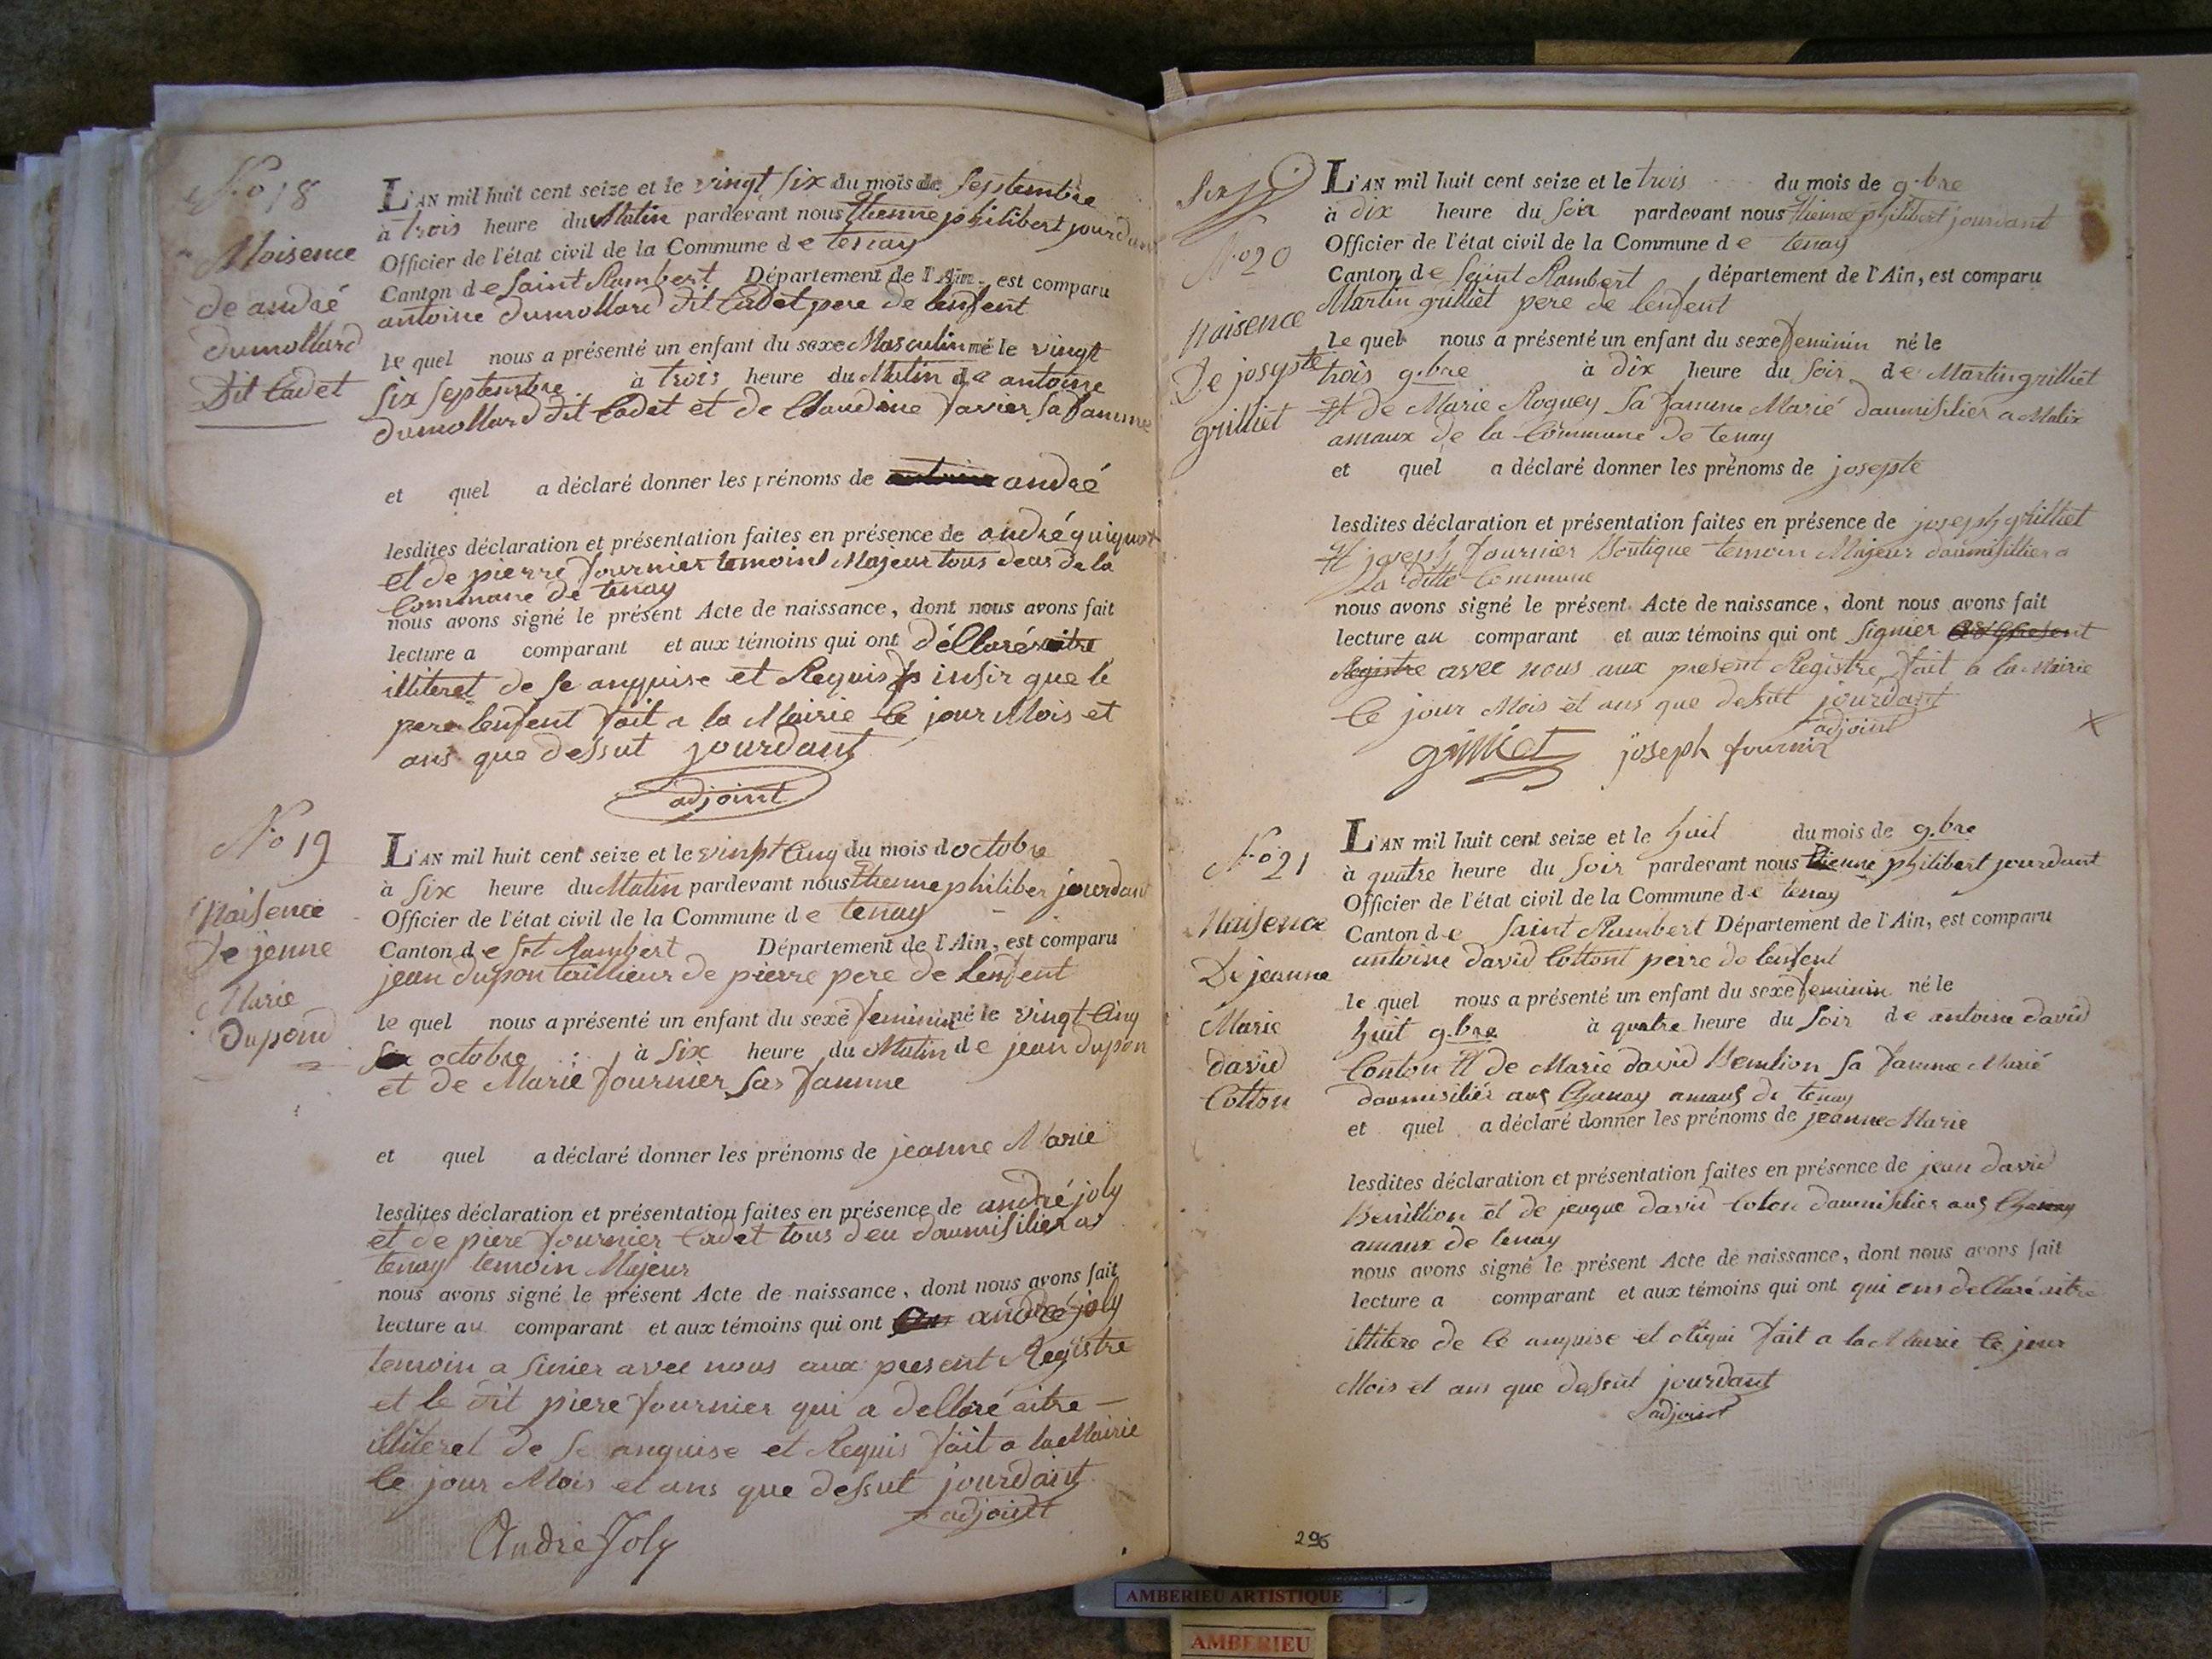 No 18
Naisence
de andré
dumollard
Dit Cadet
L'AN mil huit cent seize et le vingt six du mois de Septembre
à trois heure du Matin pardevant nous Etienne philibert jourdant
Officier de l'état civil de la Commune de tenay
Canton de Saint Rambert Département de l'Ain, est comparu
antoine dumollard dit Cadet pere de lenfent
le quel nous a présenté un enfant du sexe Masculin né le vingt
six septembre à trois heure du Matin de antoine
dumollard dit Cadet et de Claudine favier sa famme
et quel a déclaré donner les prénoms de andré
lesdites déclaration et présentation faites en présence de andré guiguet
et de pierre fournier temoint Majeur tous deus de la
Commune de tenay
nous avons signé le présent Acte de naissance, dont nous avons fait
lecture a comparant et aux témoins qui ont délleré aitre
illiteret de se anquise et Requis insir que le
pere lenfent fait a la Mairie le jour Mois et
ans que dessut jourdant
adjoint
No 19
Naisence
De jenne
Marie
Dupond
L'AN mil huit cent seize et le vinpt Cinq du mois doctobre
à Six heure du Matin pardevant nous Etienne philiber jourdant
Officier de l'état civil de la Commune de tenay
Canton de St Rambert Département de l'Ain, est comparu
jean dupon taillieur de pierre pere de lenfent
le quel nous a présenté un enfant du sexe feminin né le vingt Cinq
octobre à six heure du Matin de jean dupon
et de Marie fournier sas famme
et quel a déclaré donner les prénoms de jeanne Marie
lesdites déclaration et présentation faites en présence de andré joly
et de piere fournier Cadet tous deu daumisilier a
tenay temoin Majeur
nous avons signé le présent Acte de naissance, dont nous avons fait
lecture au comparant et aux témoins qui ont andré joly
temoin a sinier avec nous aux present Registre
et le dit piere fournier qui a delleré aitre
illiteret de se anquise et Requis fait a la Mairie
le jour Mois et ans que dessut jourdant
adjoint
André Joly
No 20
Naisence
De josepte
grilliet
L'AN mil huit cent seize et le trois du mois de 9.bre
à dix heure du soir pardevant nous Etienne philibert jourdant
Officier de l'état civil de la Commune de tenay
Canton de Saint Rambert département de l'Ain, est comparu
Martin grilliet pere de lenfent
le quel nous a présenté un enfant du sexe feminin né le
trois 9.bre à dix heure du soir de Martin grilliet
Et de Marie Roguey sa famme Marié daumisilier a Malix
amaux de la Commune de tenay
et quel a déclaré donner les prénoms de josepte
lesdites déclaration et présentation faites en présence de joseph grilliet
Et joseph fournier Boutique temoin Majeur daumisillier a
la ditte Commune
nous avons signé le présent Acte de naissance, dont nous avons fait
lecture au comparant et aux témoins qui ont signier
Registre avec nous aux present Registre fait a la Mairie
le jour Mois et ans que dessut jourdant
adjoint
grilliet joseph fournir
No 21
Naisence
De jeanne
Marie
david
Cotton
L'AN mil huit cent seize et le huit du mois de 9.bre
à quatre heure du soir pardevant nous Etienne philibert jourdant
Officier de l'état civil de la Commune de tenay
Canton de Saint Rambert Département de l'Ain, est comparu
antoine david Cottont perre de lenfent
le quel nous a présenté un enfant du sexe feminin né le
huit 9.bre à quatre heure du soir de antoine david
Conton Et de Marie david Benition sa famme Marié
daumisiliér aus Chanay amaus de tenay
et quel a déclaré donner les prénoms de jeanne Marie
lesdites déclaration et présentation faites en présence de jean david
Benittion et de jeuque david Coton daumisilier aus Chanay
amaux de tenay
nous avons signé le présent Acte de naissance, dont nous avons fait
lecture a comparant et aux témoins qui ont qui ons delleré aitre
illitere de Ce anquise et Requi fait a la Mairie le jour
Mois et ans que dessut jourdant
adjoint
296
AMBERIEU ARTISTIQUE
AMBERIEU